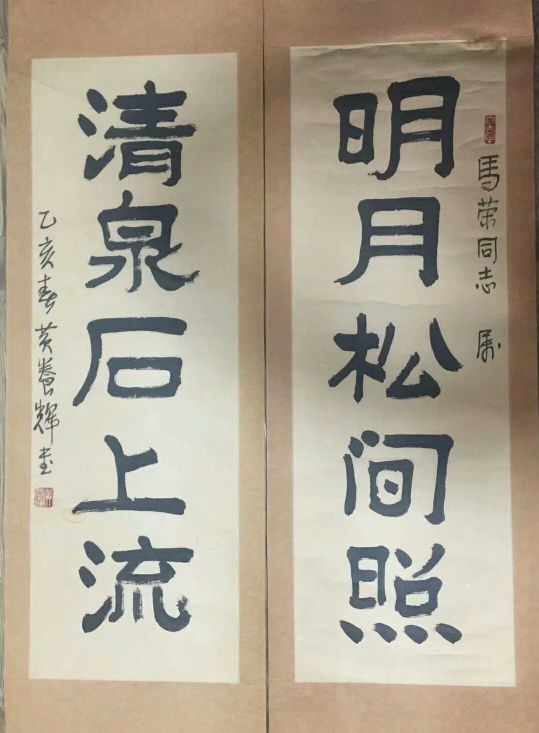 馬荣同志 属
明月松间照
清泉石上流
乙亥春黄養輝书